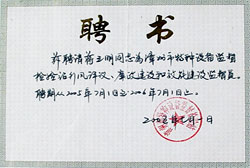 聘书
兹聘请蒋玉明同志为漳州市特种设备监督
检验站行风评议、廉政建设和效能建设监督员。
聘期从2005年7月1日至2006年7月1日止。
2005年7月1日